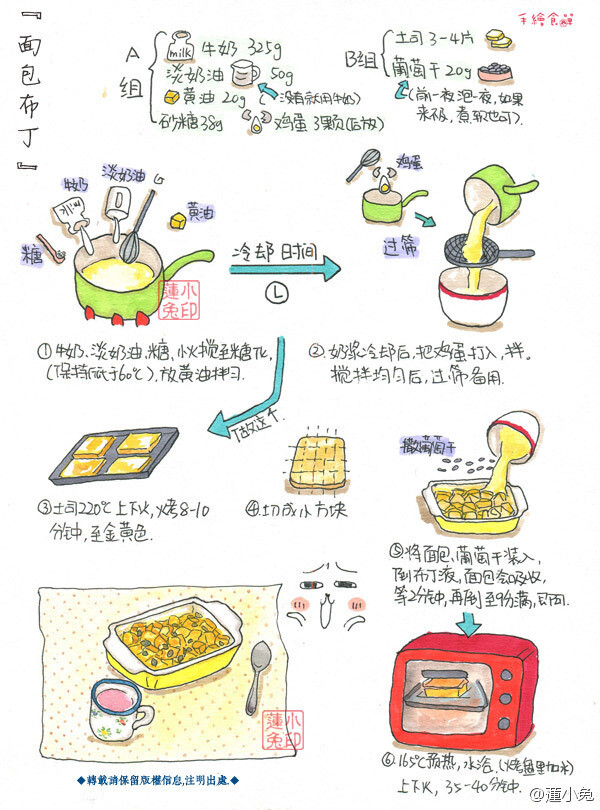 手繪食譜
『面包布丁』
A组
milk 牛奶 325g
淡奶油 50g
黄油 20g (没有就用牛奶)
砂糖38g 鸡蛋 3颗(后放)
B组
土司 3-4片
葡萄干 20g
(前一夜泡一夜,如果
来不及,煮软也可).
糖
牛奶
milk
淡奶油
黄油
冷却 时间
鸡蛋
过筛
蓮小兔印
①牛奶、淡奶油、糖,小火搅至糖化,
(保持低于60℃),放黄油拌匀.
②奶浆冷却后,把鸡蛋打入,拌.
搅拌均匀后,过筛备用.
做这个.
③土司220℃上下火,烤8-10
分钟,至金黄色.
④切成小方块
撒葡萄干
⑤将面包,葡萄干装入,
倒布丁液,面包会吸收,
等2分钟,再倒至9份满,即可.
⑥165℃预热,水浴.(烤盘里加水)
上下火,35-40分钟.
蓮小兔印
◆轉載請保留版權信息,注明出處◆
@蓮小兔